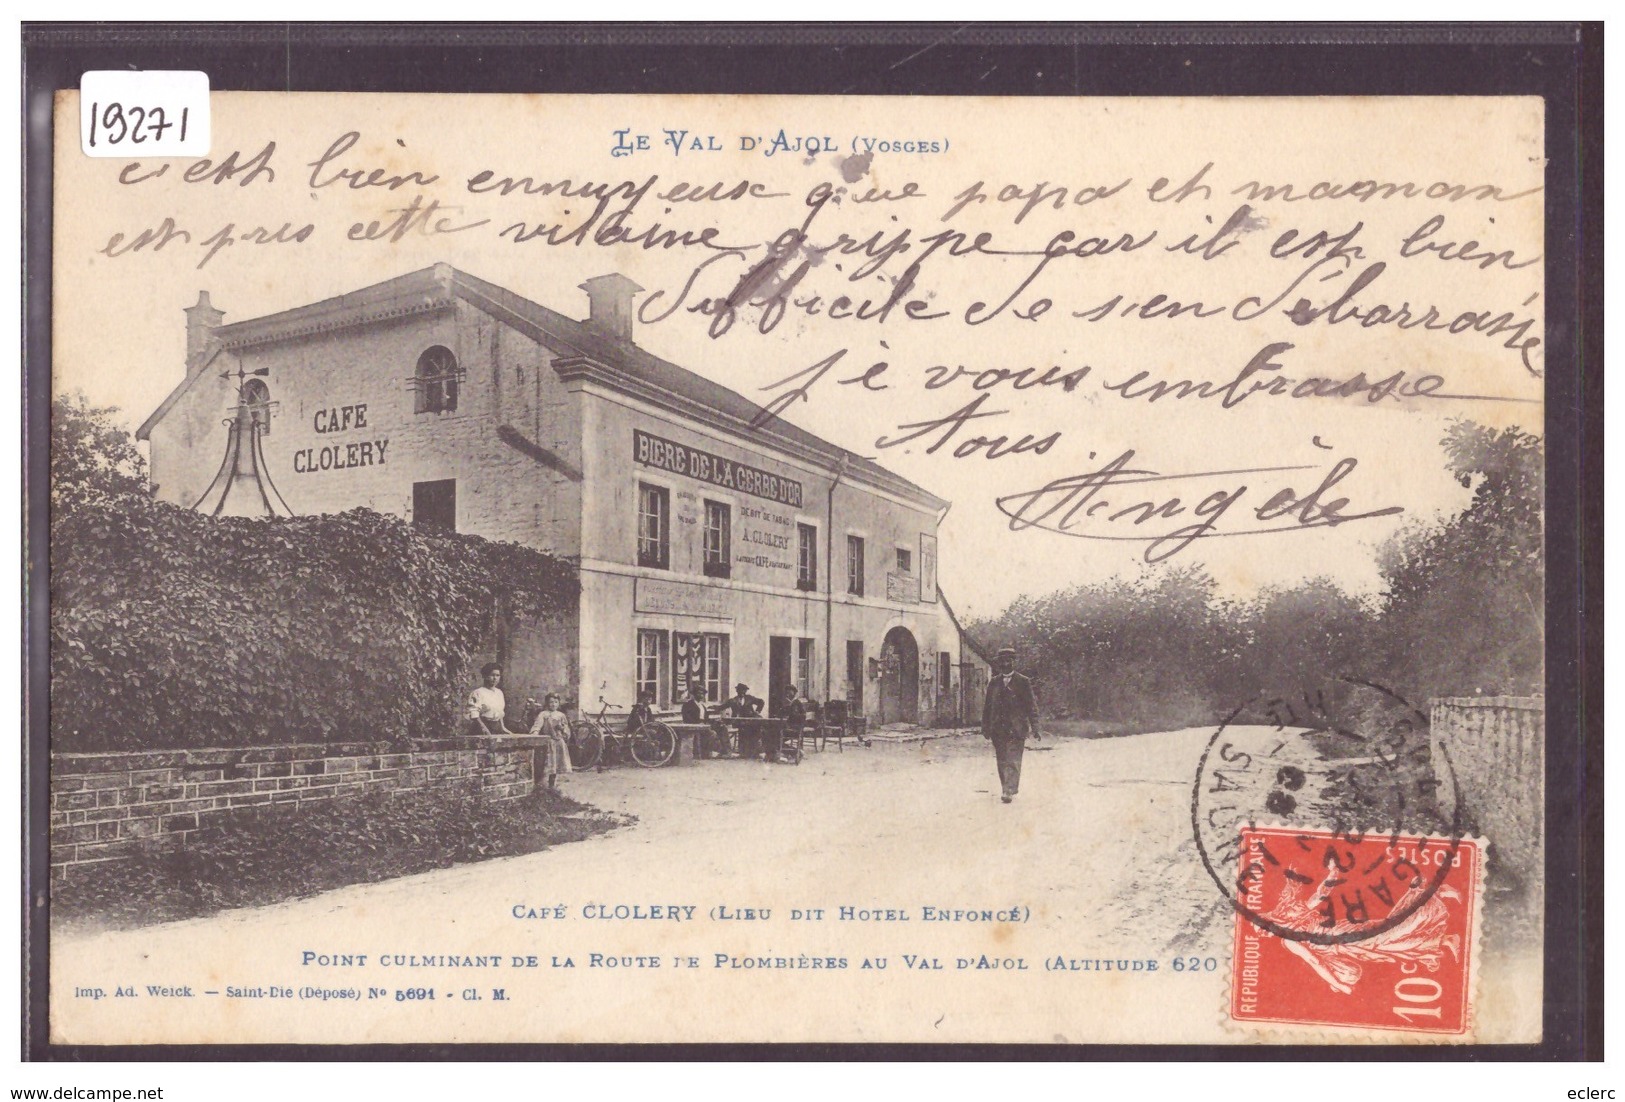 19271
LE VAL D'AJOL (VOSGES)
c'est bien ennuyeux que papa et maman
est pris cette vilaine grippe car il est bien
difficile de s'en débarrasse
je vous embrasse
Tous
Angèle
CAFE
CLOLERY
BIERE DE LA GERBE D'OR
DEBIT DE TABAC
A. CLOLERY
CAFE
GARE
REPUBLIQUE FRANÇAISE
POSTES
10 C
CAFÉ CLOLERY (LIEU DIT HOTEL ENFONCÉ)
POINT CULMINANT DE LA ROUTE DE PLOMBIÈRES AU VAL D'AJOL (ALTITUDE 620
Imp. Ad. Weick. — Saint-Dié (Déposé) Nº 5691 - Cl. M.
19271
eclerc